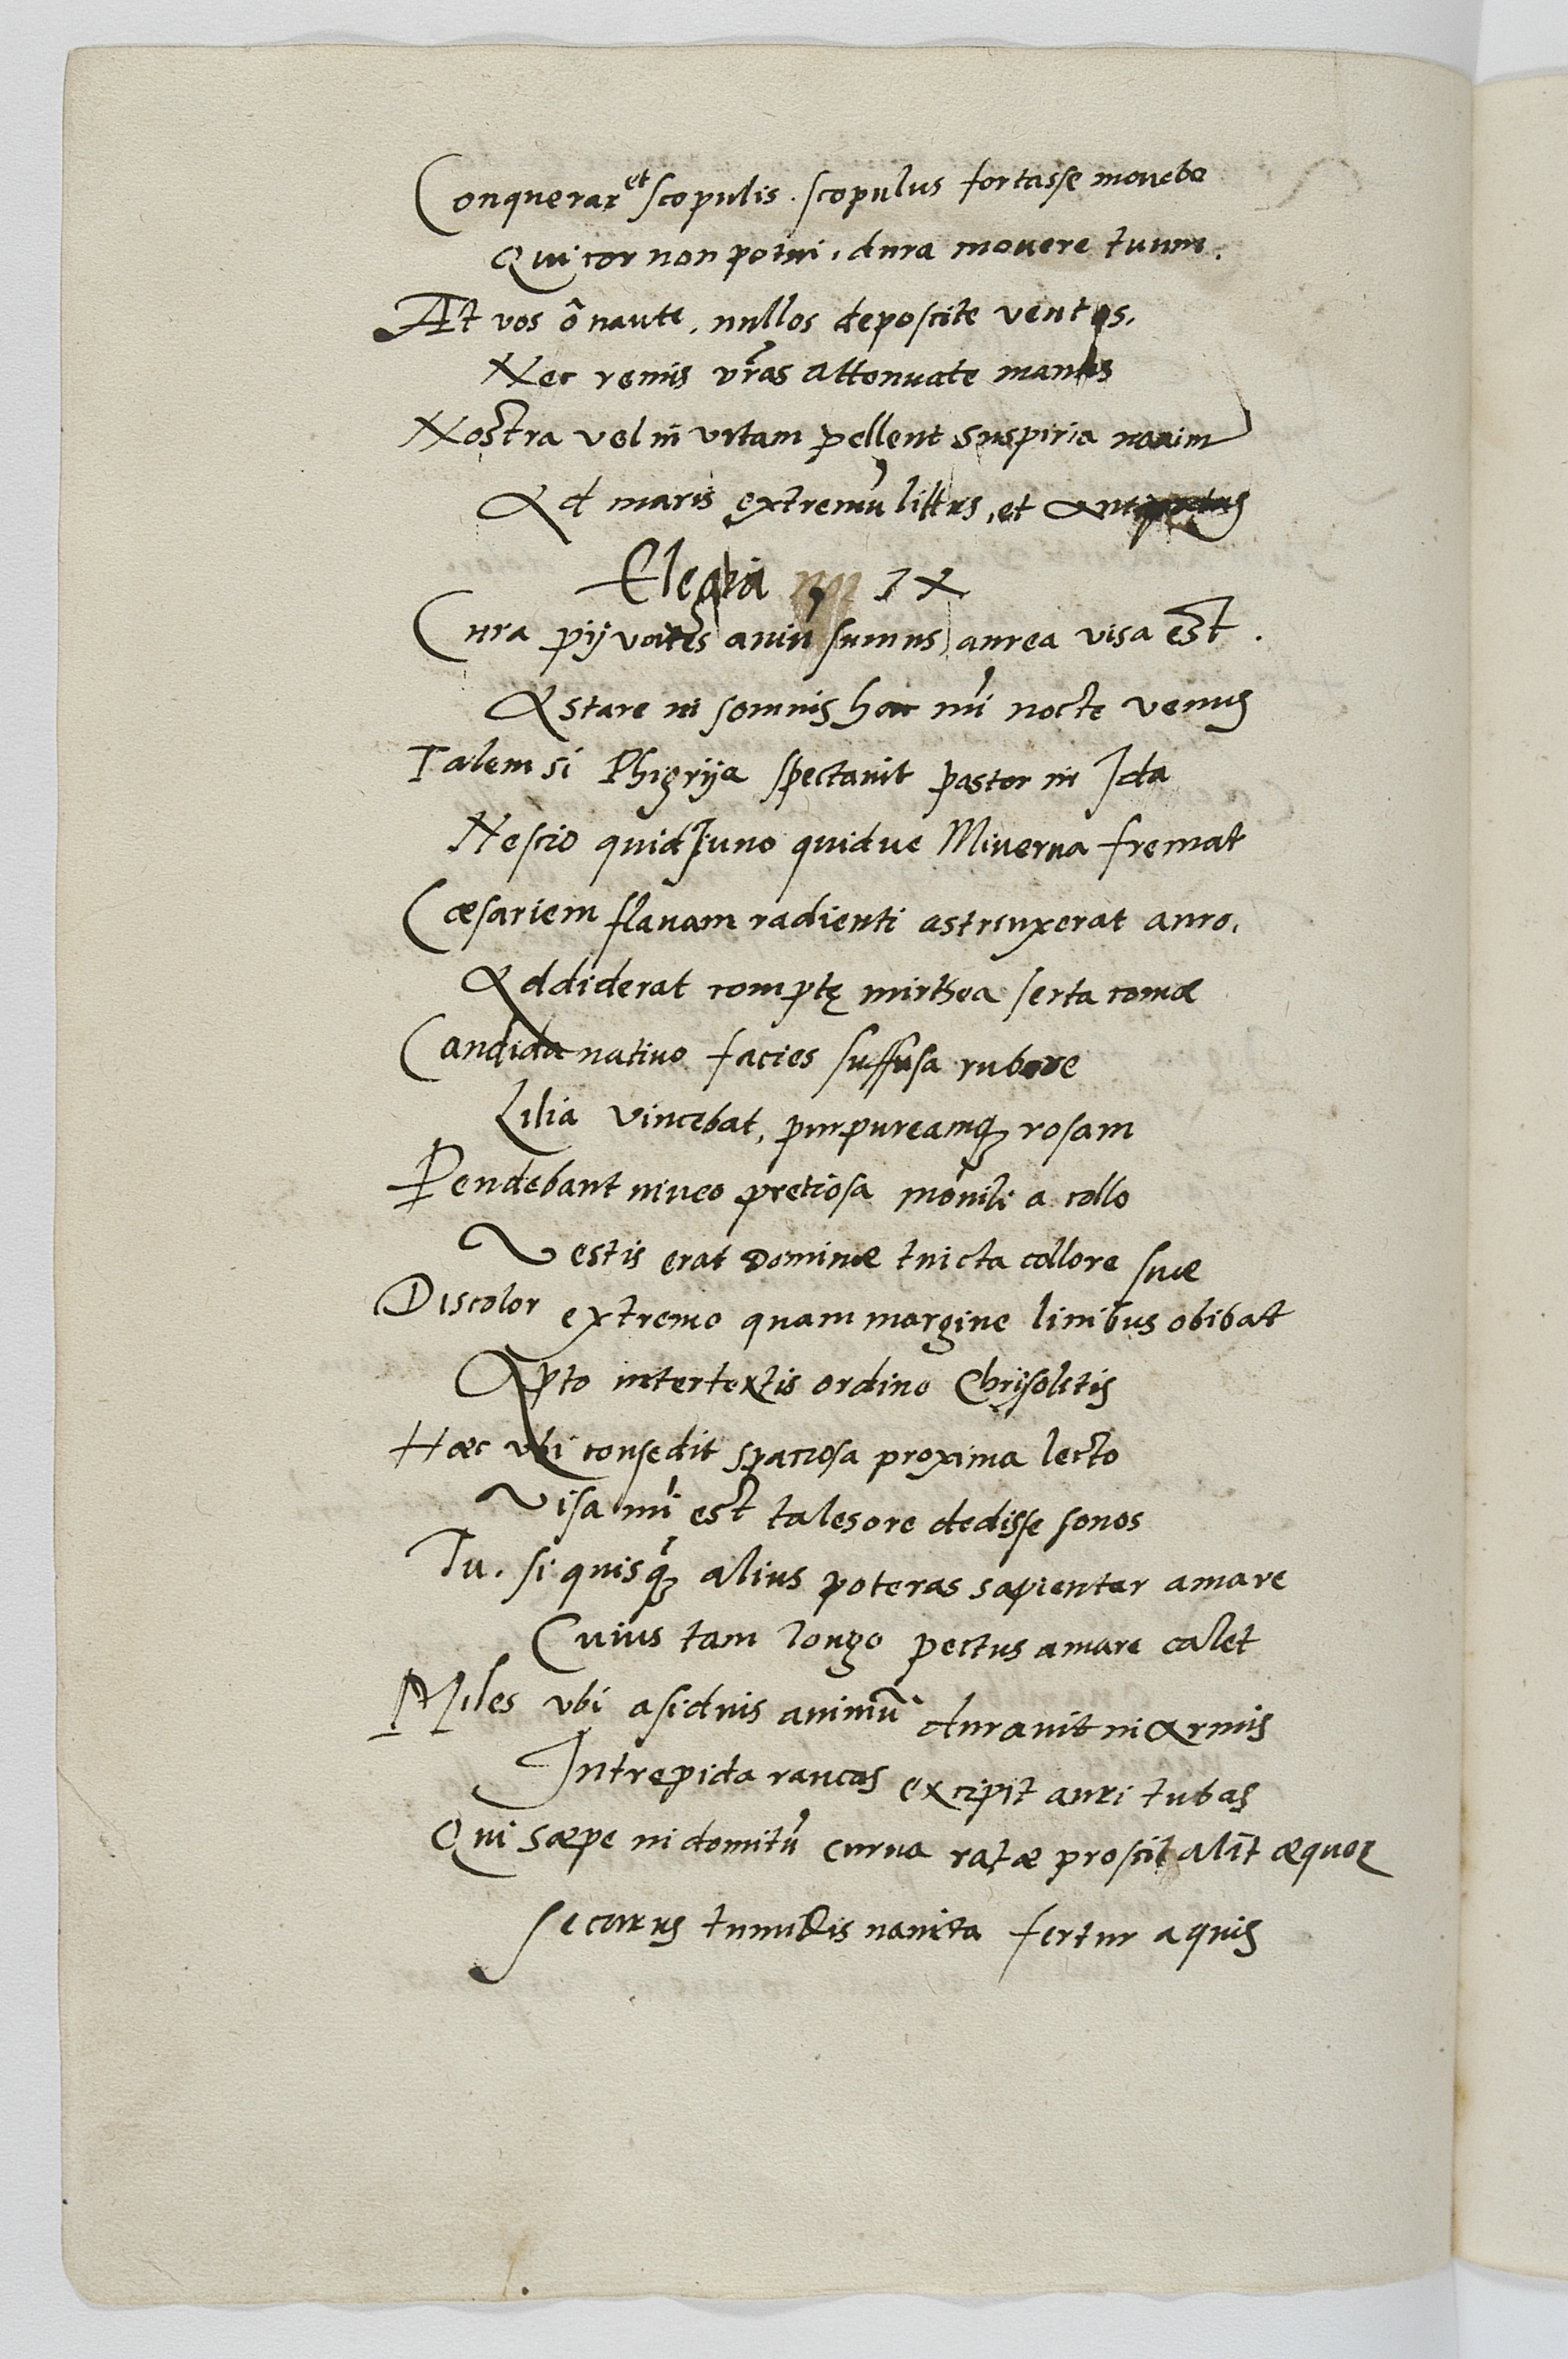 Conquerar et scopulis. scopulus fortasse mouebo
Qui cor non potui, dura mouere tuum.
At vos ô naute, nullos deposcite ventos,
Nec remis vr̃as attonuate manus
Nostra vel in vitam pellent suspiria nauim
Ad maris extremũ littus, et
Elegia IX
Cura pij vates aniũ sumus aurea visa est.
Astare in somnis hac mi nocte venus
Talem si Phigrija spectauit pastor in Ida
Nescio quid Juno quidue Minerua fremat
Cæsariem flauam radienti astruxerat auro,
Addiderat comptę mirthea serta comæ
Candida natiuo facies suffusa rubore
Lilia vincebat, purpureamqꝫ rosam
Pendebant niueo pretiosa monili a collo
Vestis erat Dominæ tincta collore suæ
Discolor extremo quam margine limbus obibat
Apto intertextis ordine Chrijsolitis
Hæc vbi consedit spaciosa proxima lecto
Visa mi est tales ore dedisse sonos
Tu. si quisqꝫ alius poteras sapienter amare
Cuius tam longo pectus amare calet
Miles vbi asiduis animũ durauit in armis
Intrepida raucas excipit auri tubas
Qui sæpe indomitũ curua ratæ æquor
Securus tumidis nauita fertur aquis